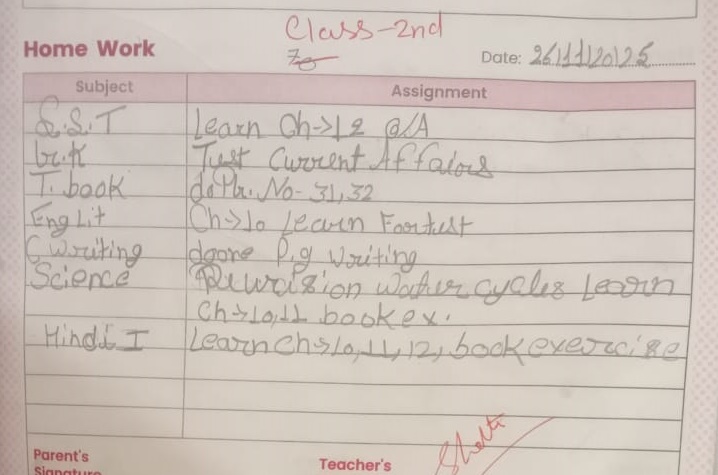 Class-2nd
Home Work
Date: 26/11/2025
Subject Assignment
S.S.T Learn Ch→12 Q/A
G.K Test Current Affairs
T. book do Pg. No- 31,32
Eng Lit Ch→10 Learn For test
C writing doone P.g writing
Science Rewrision water cycles Learn
Ch→10,11 book ex.
Hindi I Learn Ch→10,11,12, book exercise
Parent's
Signature
Teacher's